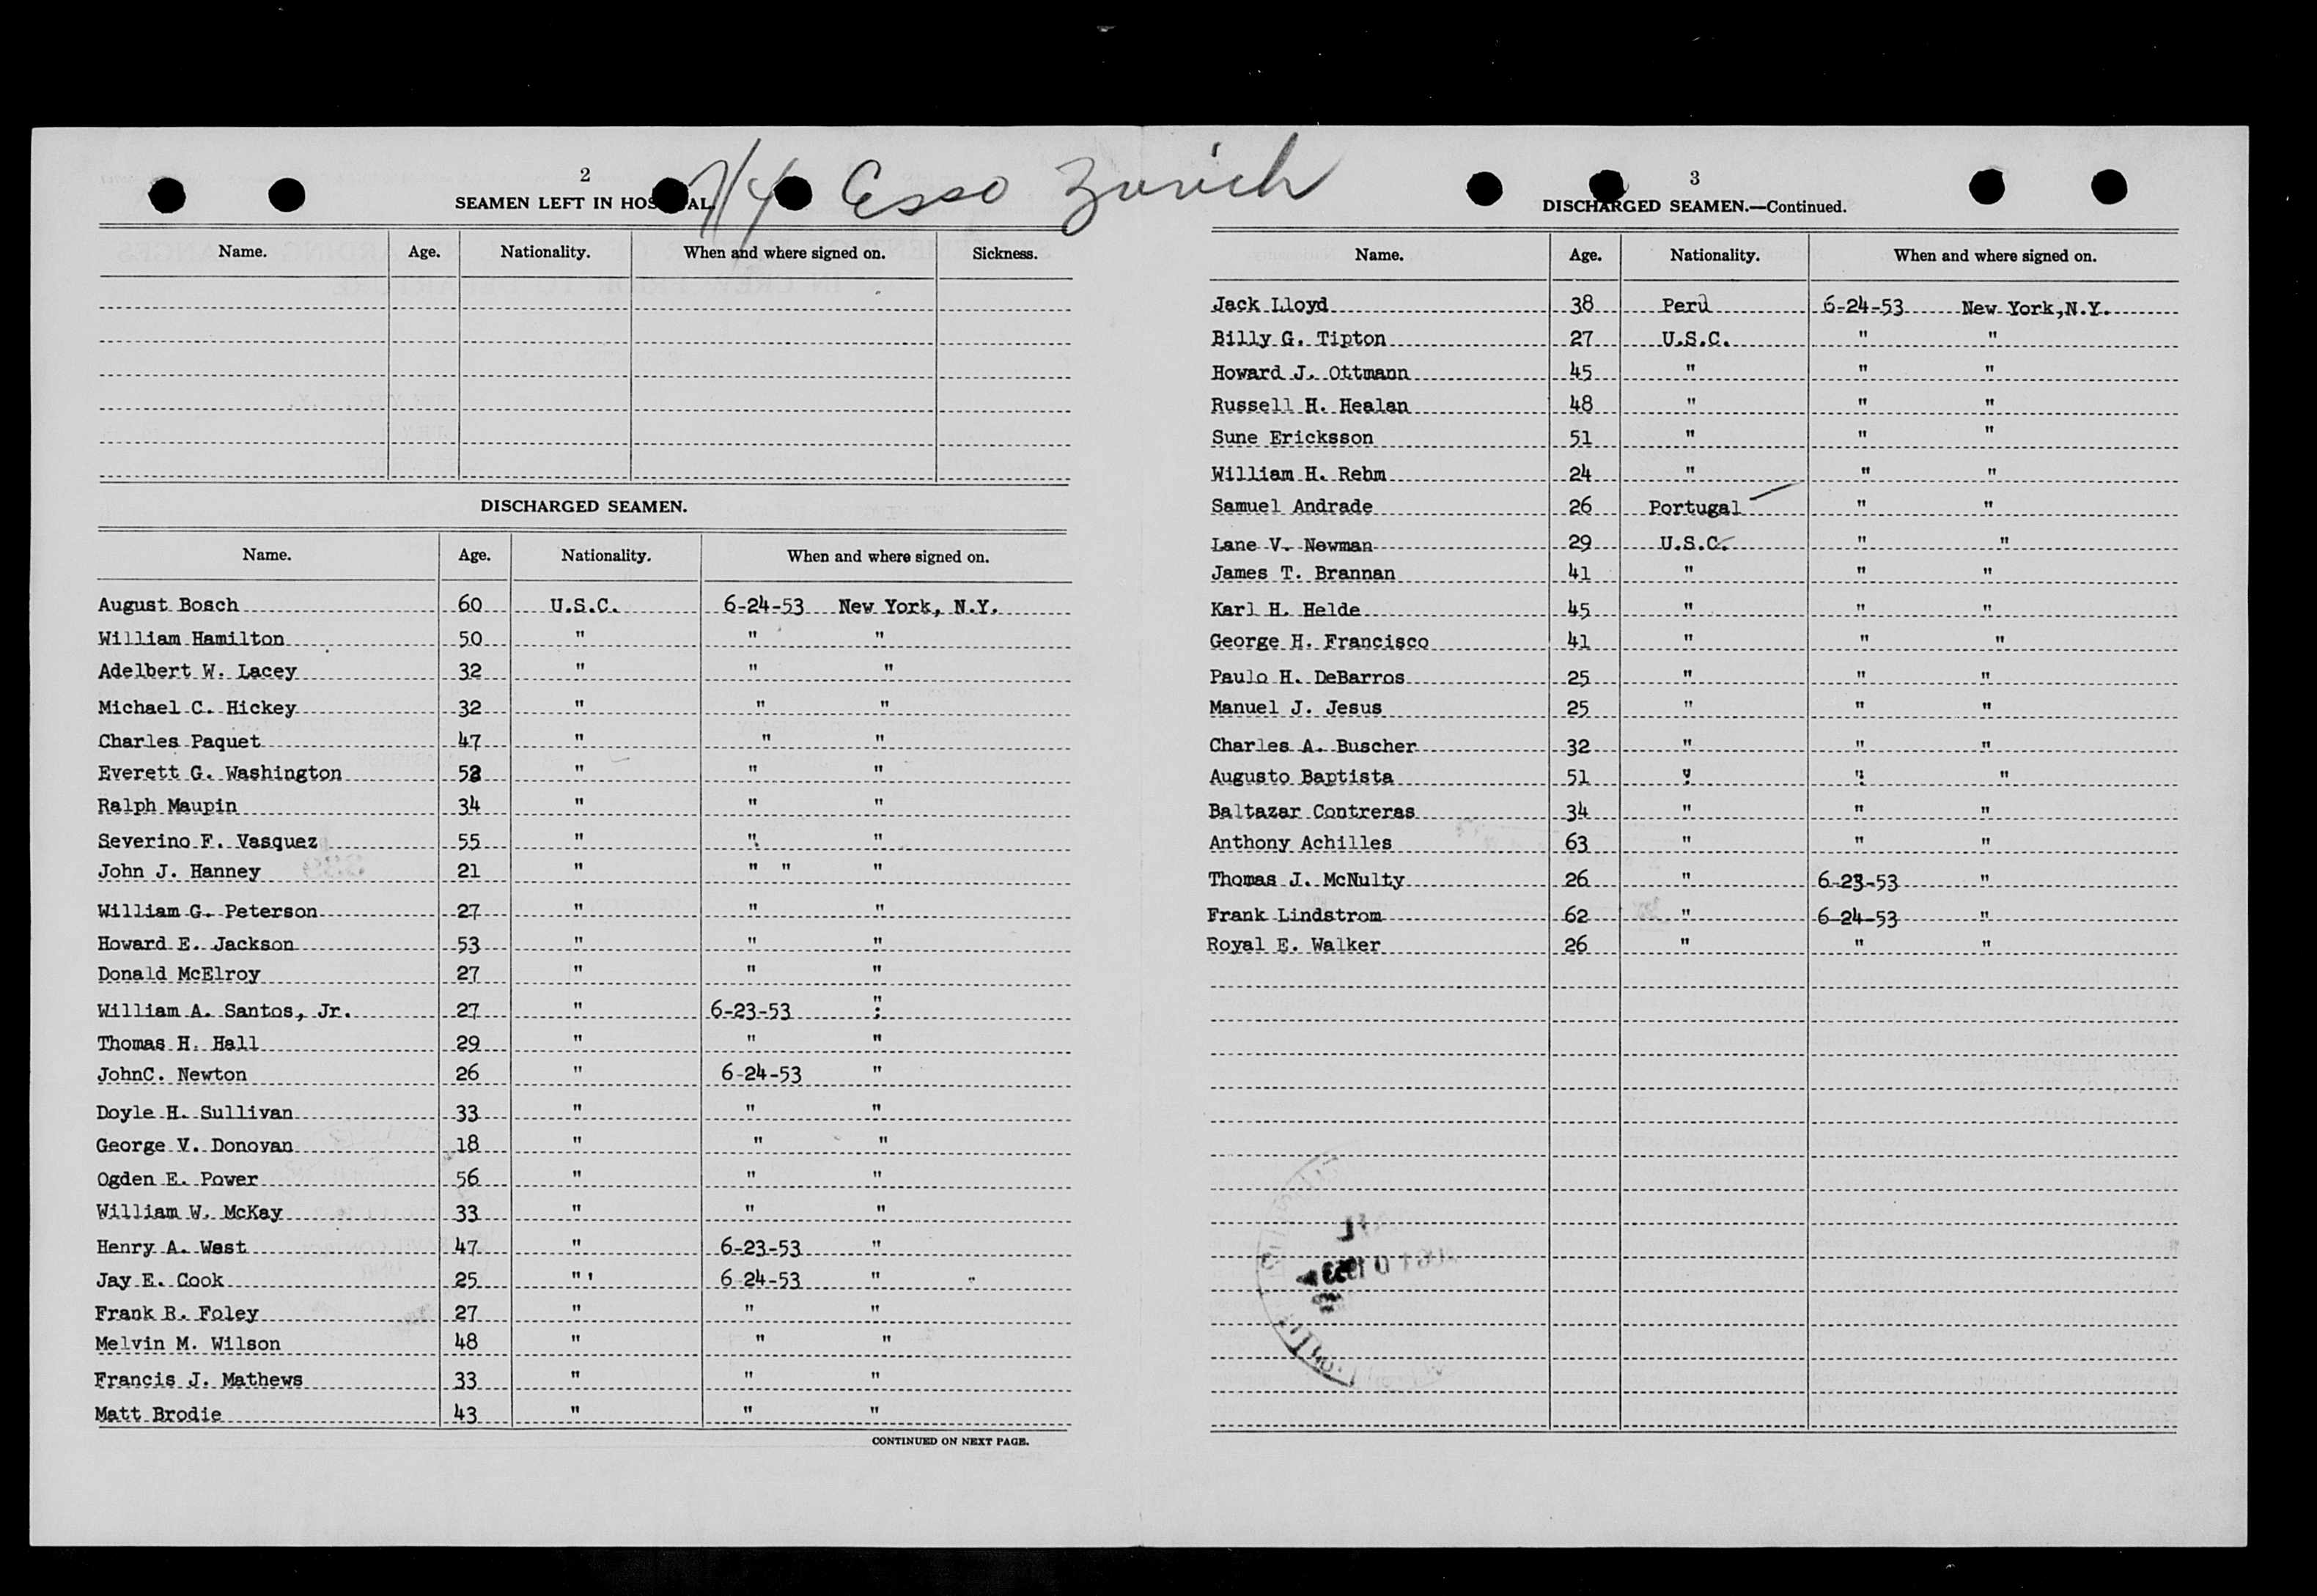 2
Esso Zurich
SEAMEN LEFT IN HOS AL.
Name. Age. Nationality. When and where signed on. Sickness.
DISCHARGED SEAMEN.
Name. Age. Nationality. When and where signed on.
August Bosch 60 U.S.C. 6-24-53 New York, N.Y.
William Hamilton 50 " " "
Adelbert W. Lacey 32 " " "
Michael C. Hickey 32 " " "
Charles Paquet 47 " " "
Everett G. Washington 52 " " "
Ralph Maupin 34 " " "
Severino F. Vasquez 55 " " "
John J. Hanney 21 " " " "
William G. Peterson 27 " " "
Howard E. Jackson 53 " " "
Donald McElroy 27 " " "
William A. Santos, Jr. 27 " 6-23-53 "
Thomas H. Hall 29 " " "
JohnC. Newton 26 " 6-24-53 "
Doyle H. Sullivan 33 " " "
George V. Donovan 18 " " "
Ogden E. Power 56 " " "
William W. McKay 33 " " "
Henry A. West 47 " 6-23-53 "
Jay E. Cook 25 "' 6-24-53 "
Frank R. Foley 27 " " "
Melvin M. Wilson 48 " " "
Francis J. Mathews 33 " " "
Matt Brodie 43 " " "
CONTINUED ON NEXT PAGE.
3
DISCHARGED SEAMEN.—Continued.
Name. Age. Nationality. When and where signed on.
Jack Lloyd 38 Peru 6-24-53 New York,N.Y.
Billy G. Tipton 27 U.S.C. " "
Howard J. Ottmann 45 " " "
Russell H. Healan 48 " " "
Sune Ericksson 51 " " "
William H. Rehm 24 " " "
Samuel Andrade 26 Portugal " "
Lane V. Newman 29 U.S.C. " "
James T. Brannan 41 " " "
Karl H. Helde 45 " " "
George H. Francisco 41 " " "
Paulo H. DeBarros 25 " " "
Manuel J. Jesus 25 " " "
Charles A. Buscher 32 " " "
Augusto Baptista 51 " " "
Baltazar Contreras 34 " " "
Anthony Achilles 63 " " "
Thomas J. McNulty 26 " 6-23-53 "
Frank Lindstrom 62 " 6-24-53 "
Royal E. Walker 26 " " "